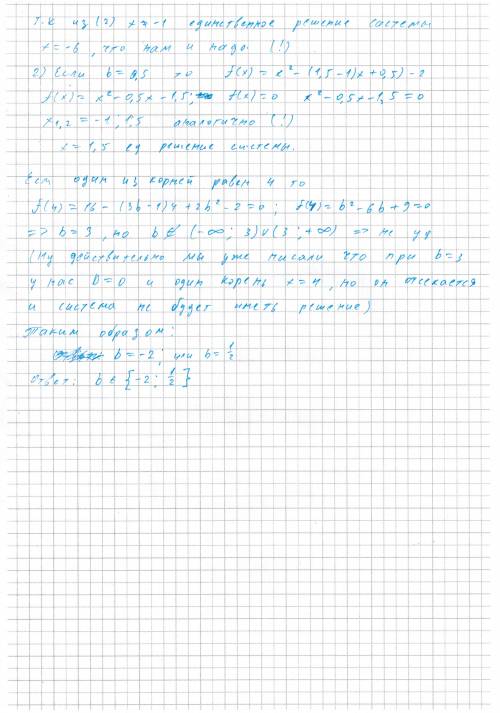 т.к из (2) x ≠ -1 единственное решение системы
x = -6, что нам и надо (!)
2) Если b = 0,5 то f(x) = x² - (1,5-1)x + 0,5) - 2
f(x) = x² - 0,5x - 1,5; f(x) = 0 x² - 0,5x - 1,5 = 0
x₁,₂ = -1; 1,5 аналогично (!)
x = 1,5 ед решение системы.
Если один из корней равен 4 то
f(4) = 16 - (3b-1)4 + 2b² - 2 = 0; f(4) = b² - 6b + 9 = 0
=> b = 3, но b ∈ (-∞; 3)∪(3; +∞) => не уд
(Ну действительно мы уже писали что при b = 3
у нас D = 0 и один корень x = 4, но он отсекается
и система не будет иметь решение)
Таким образом:
b = -2; или b = 1/2
Ответ: b ∈ {-2; 1/2}